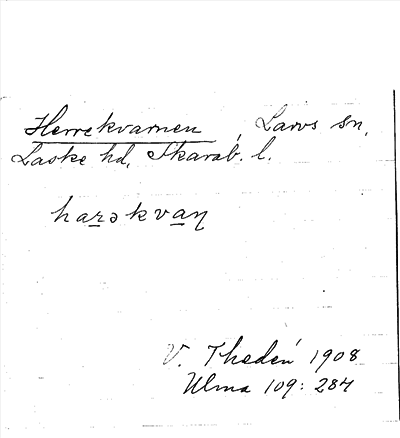 Herrekvarnen, Larvs sn,
Laske hd, Skarab. l.
harəkvaɳ
V. Thedén 1908
Ulma 109: 284